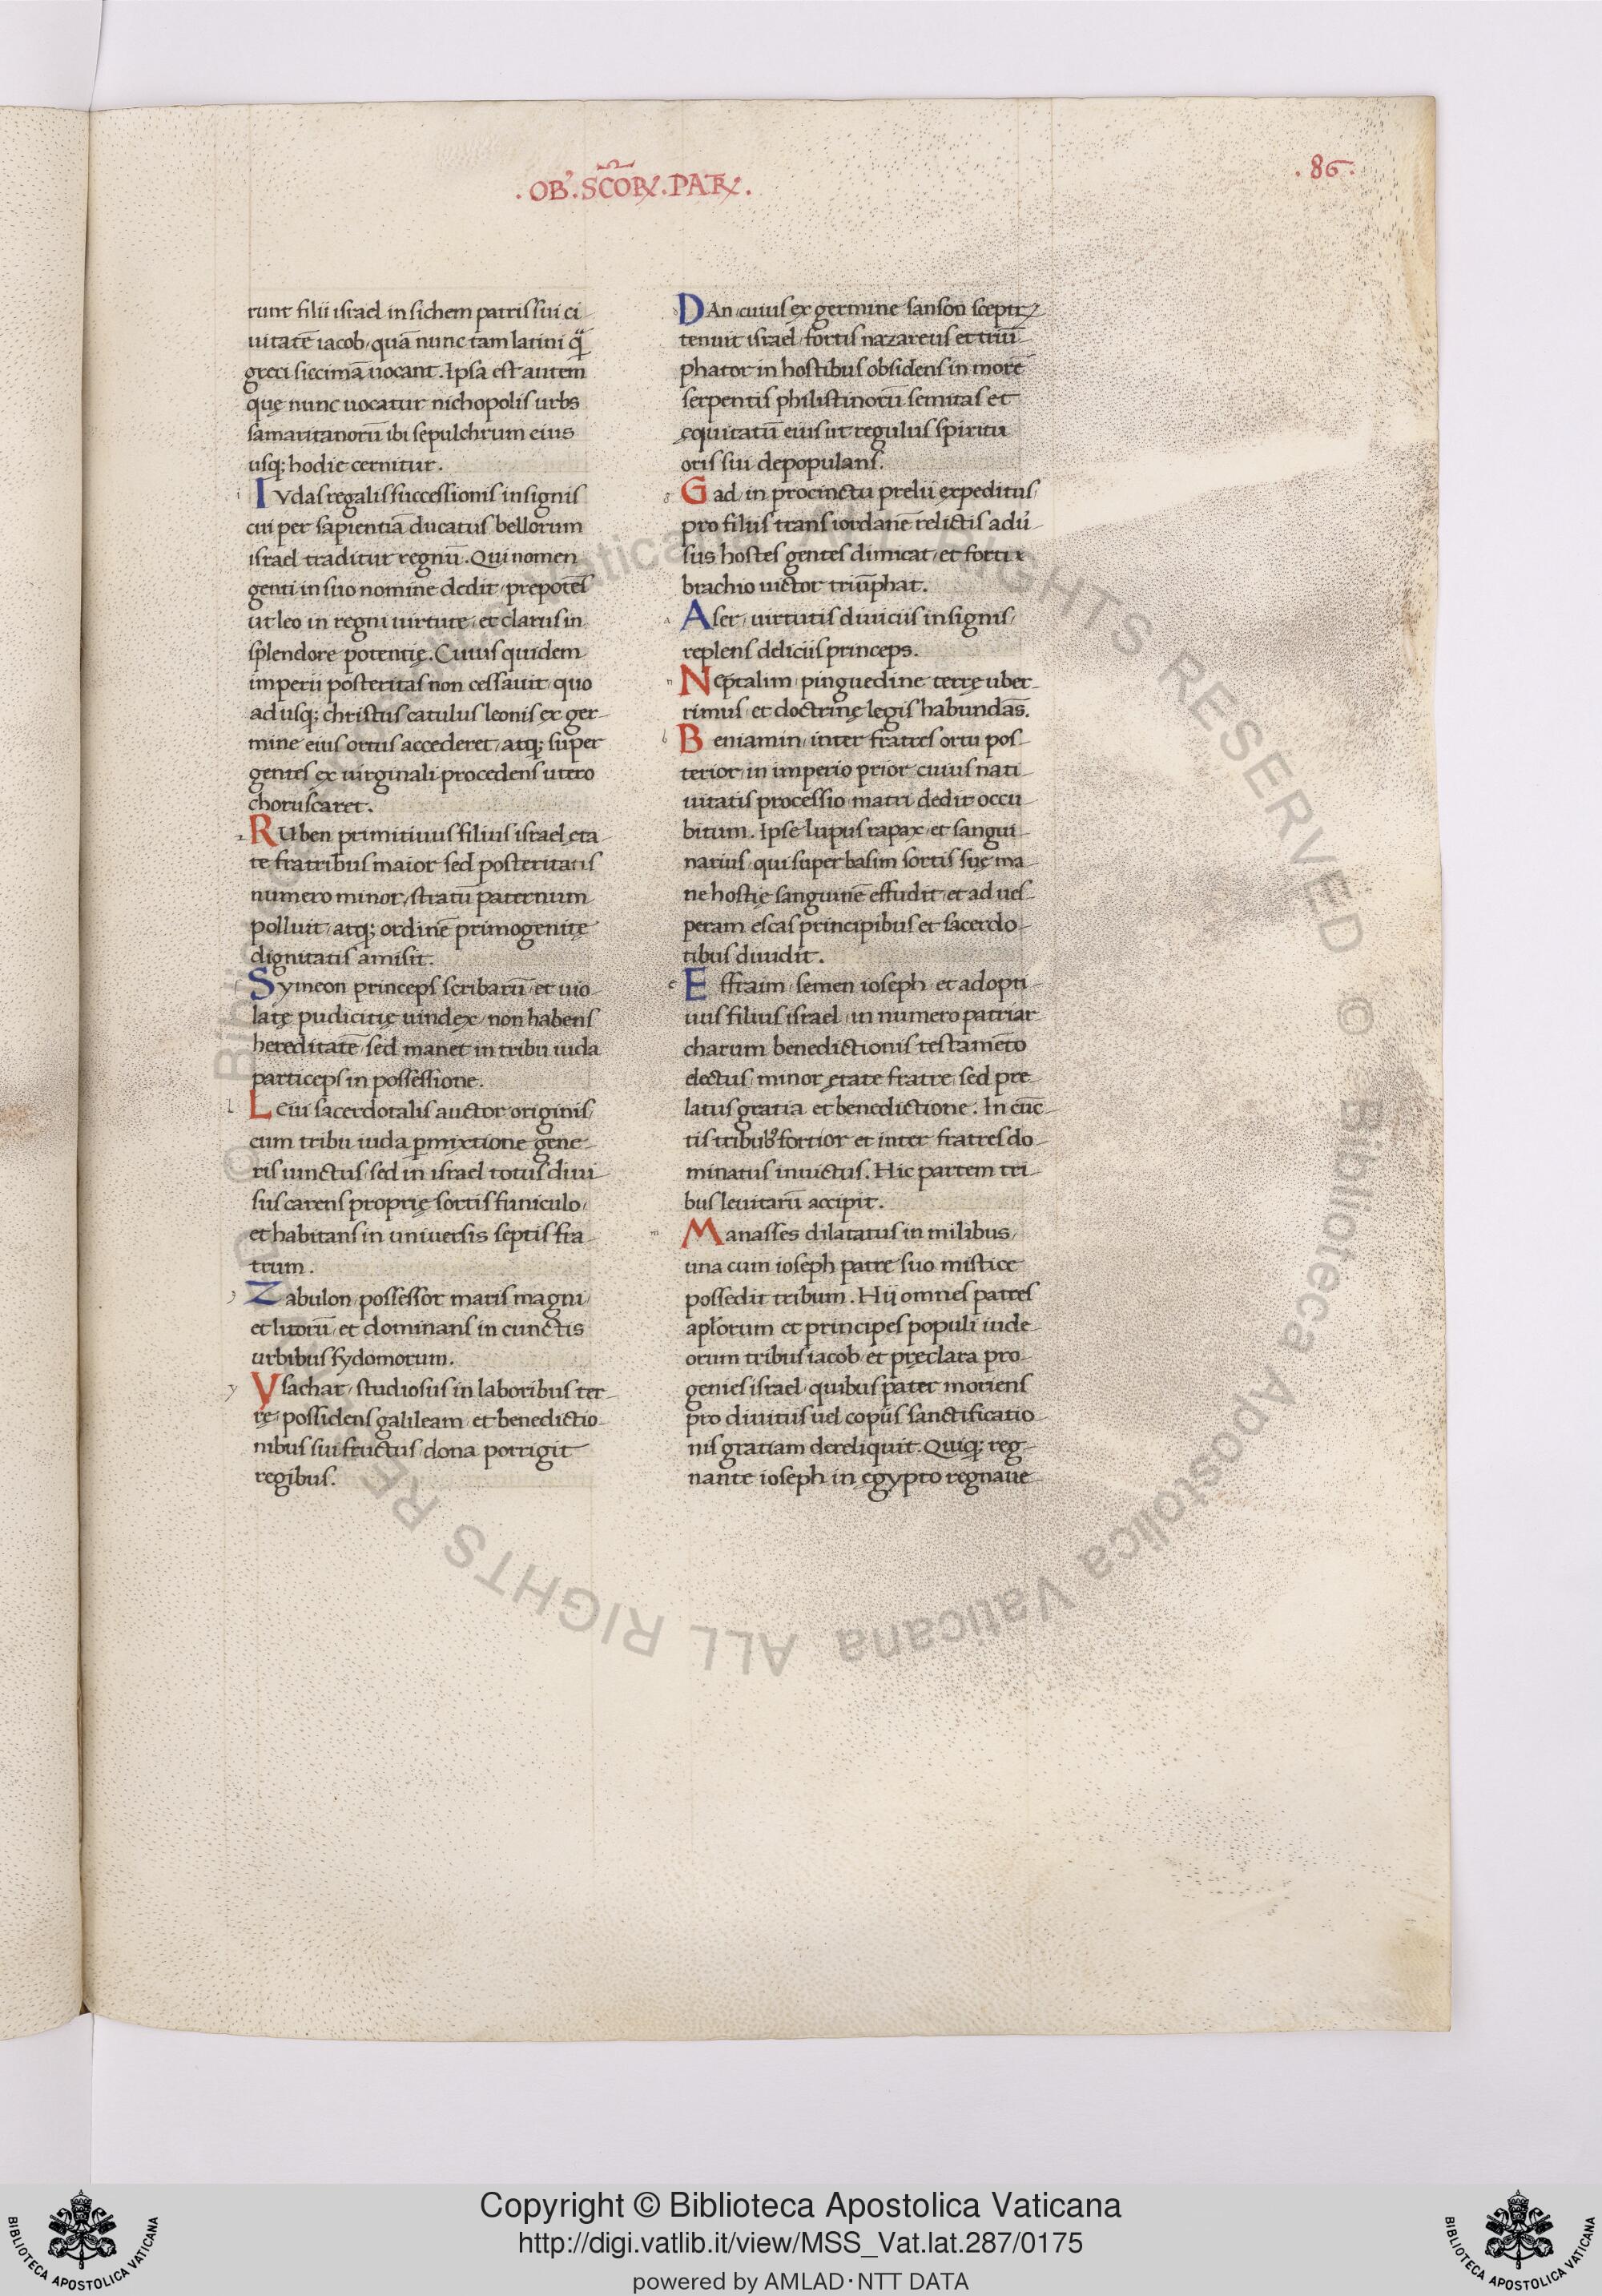 .OB᾽.SCOꝜ.PATꝜ.
.86.
runt filii israel in sichem patris sui ci-
uitatē iacob, quā nunc tam latini q̄
greci siecimā uocant. Ipsa est autem
quę nunc uocatur nichopolis urbs
samaritanorū ibi sepulchrum eius
usq; hodie cernitur.
IVdas regalis successionis insignis
cui per sapientiā ducatus bellorum
israel traditur regnū. Qui nomen
genti in suo nomine dedit, prepotēs
ut leo in regni uirtute, et clarus in
splendore potentię. Cuius quidem
imperii posteritas non cessauit, quo
adusq; christus catulus leonis ex ger-
mine eius ortus accederet, atq; super
gentes ex uirginali procedens utero
choruscaret.
RUben primitiuus filius israel ęta
te fratribus maior sed posteritatis
numero minor, stratū paternum
polluit, atq; ordinē primogenitę
dignitatis amisit.
Symeon princeps scribarū, et uio-
latę pudicitię uindex, non habens
hereditatē, sed manet in tribu iuda
particeps in possessione.
Leui sacerdotalis auctor originis,
cum tribu iuda ꝑmixtione gene-
ris iunctus, sed in israel totus diui-
sus carens proprię sortis funiculo,
et habitans in uniuersis septis fra-
trum.
Zabulon, possessor maris magni,
et litorū, et dominans in cunctis
urbibus sydomorum.
Ysachar, studiosus in laboribus ter-
rę, possidens galileam, et benedictio-
nibus sui fructus, dona porrigit
regibus.
DAn, cuius ex germine sanson sceptꝝ
tenuit israel, fortis nazareus et triū-
phator in hostibus obsidens in more
serpentis philistinorū semitas et
ęquitatū eius ut regulus spiritu
oris sui depopulans.
Gad, in procinctu prelii expeditus,
pro filiis trans iordanē relictis aduʼ-
sus hostes gentes dimicat, et forti
brachio uictor triūphat.
Aser, uirtutis diuiciis insignis,
replens deliciis princeps.
Neptalim, pinguedine terrę uber-
rimus, et doctrinę legis habundās.
Beniamin, inter fratres ortu pos-
terior, in imperio prior cuius nati-
uitatis processio, matri dedit occu-
bitum. Ipse lupus rapax, et sangui-
narius, qui super basim sortis suę ma-
ne hostię sanguinē effudit, et ad ues-
peram escas principibus et sacerdo-
tibus diuidit.
Effraim, semen ioseph, et adopti-
uus filius israel, in numero patriar-
charum benedictionis testamēto
electus, minor ętate fratre, sed pre-
latus gratia et benedictione. In cūc-
tis tribub᾽ fortior et inter fratres do-
minatus inuictus. Hic partem tri-
bus leuitarū accipit.
Manasses dilatatus in milibus,
una cum ioseph patre suo mistice
possedit tribum. Hii omnes patres
apl̄orum et principes populi iude-
orum tribus iacob, et pręclara pro-
genies israel, quibus pater moriens
pro diuitiis uel copiis sanctificatio-
nis gratiam dereliquit. Quiq; reg-
nante ioseph in ęgypto regnaue-
© Biblioteca Apostolica Vaticana ALL RIGHTS RESERVED © Biblioteca Apostolica Vaticana ALL RIGHTS RESERVED
Copyright © Biblioteca Apostolica Vaticana
http://digi.vatlib.it/view/MSS_Vat.lat.287/0175
powered by AMLAD·NTT DATA
BIBLIOTECA APOSTOLICA VATICANA
BIBLIOTECA APOSTOLICA VATICANA